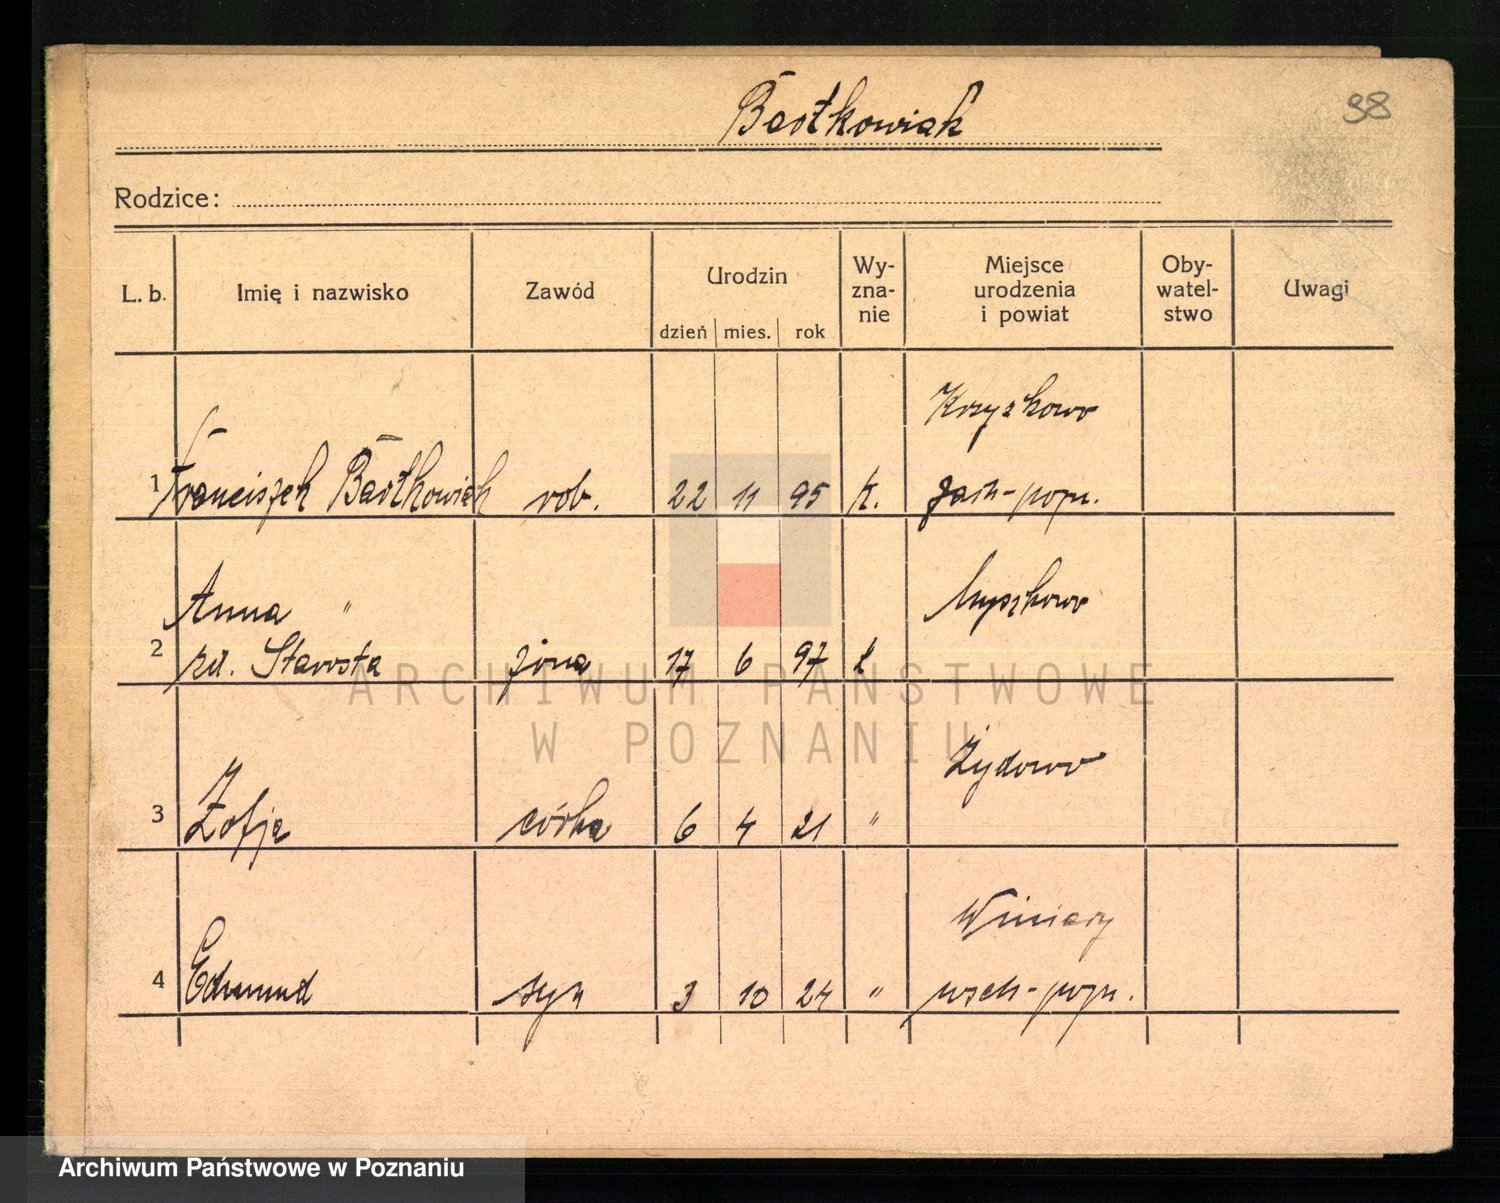 98
Bartkowiak
Rodzice:
L. b. Imię i nazwisko Zawód Urodzin dzień mies. rok Wy-zna-nie Miejsce urodzenia i powiat Oby-watel-stwo Uwagi
Krzyszkowo
1 Franciszek Bartkowiak rob. 22 11 95 k.
Anna " Myszkowo
2 Starosta żona 17 6 97
Żydowo
3 Zofja córka 6 4 21 "
Winiary
4 Edmund syn 3 10 24 "
ARCHIWUM PAŃSTWOWE
W POZNANIU
Archiwum Państwowe w Poznaniu